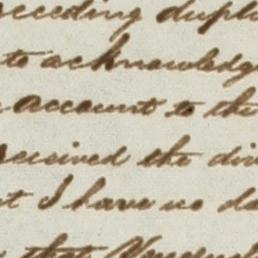 ceeding dupli
to acknowledg
account to the
received the div
t I have no do
that